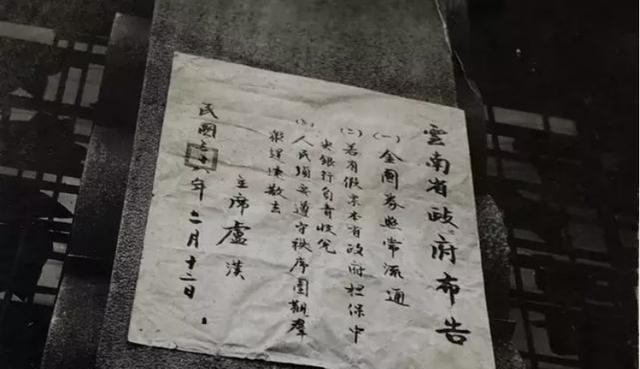 雲南省政府布告
(一)金圓券照常流通
(二)若有假票本省政府担保中
央銀行負責收兌
(三)人民須要遵守秩序圍觀羣
眾迅速散去
主席盧漢
民國三十八年二月十二日.